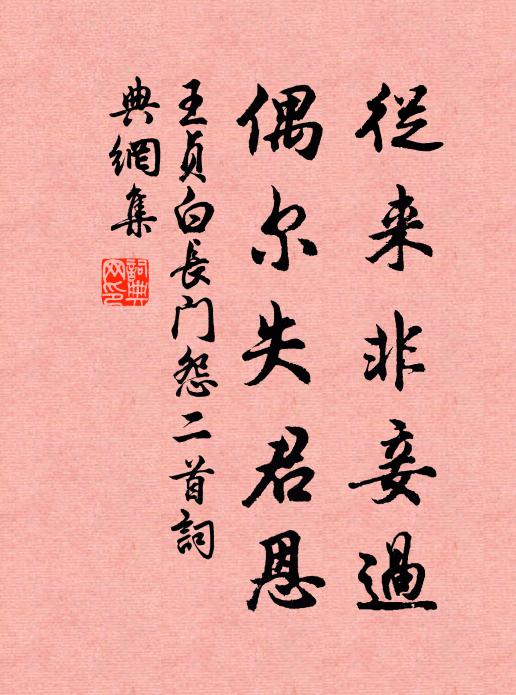 從来非妾過
偶尔失君恩
王貞白長門怨二首詞
典網集
詞典
网印